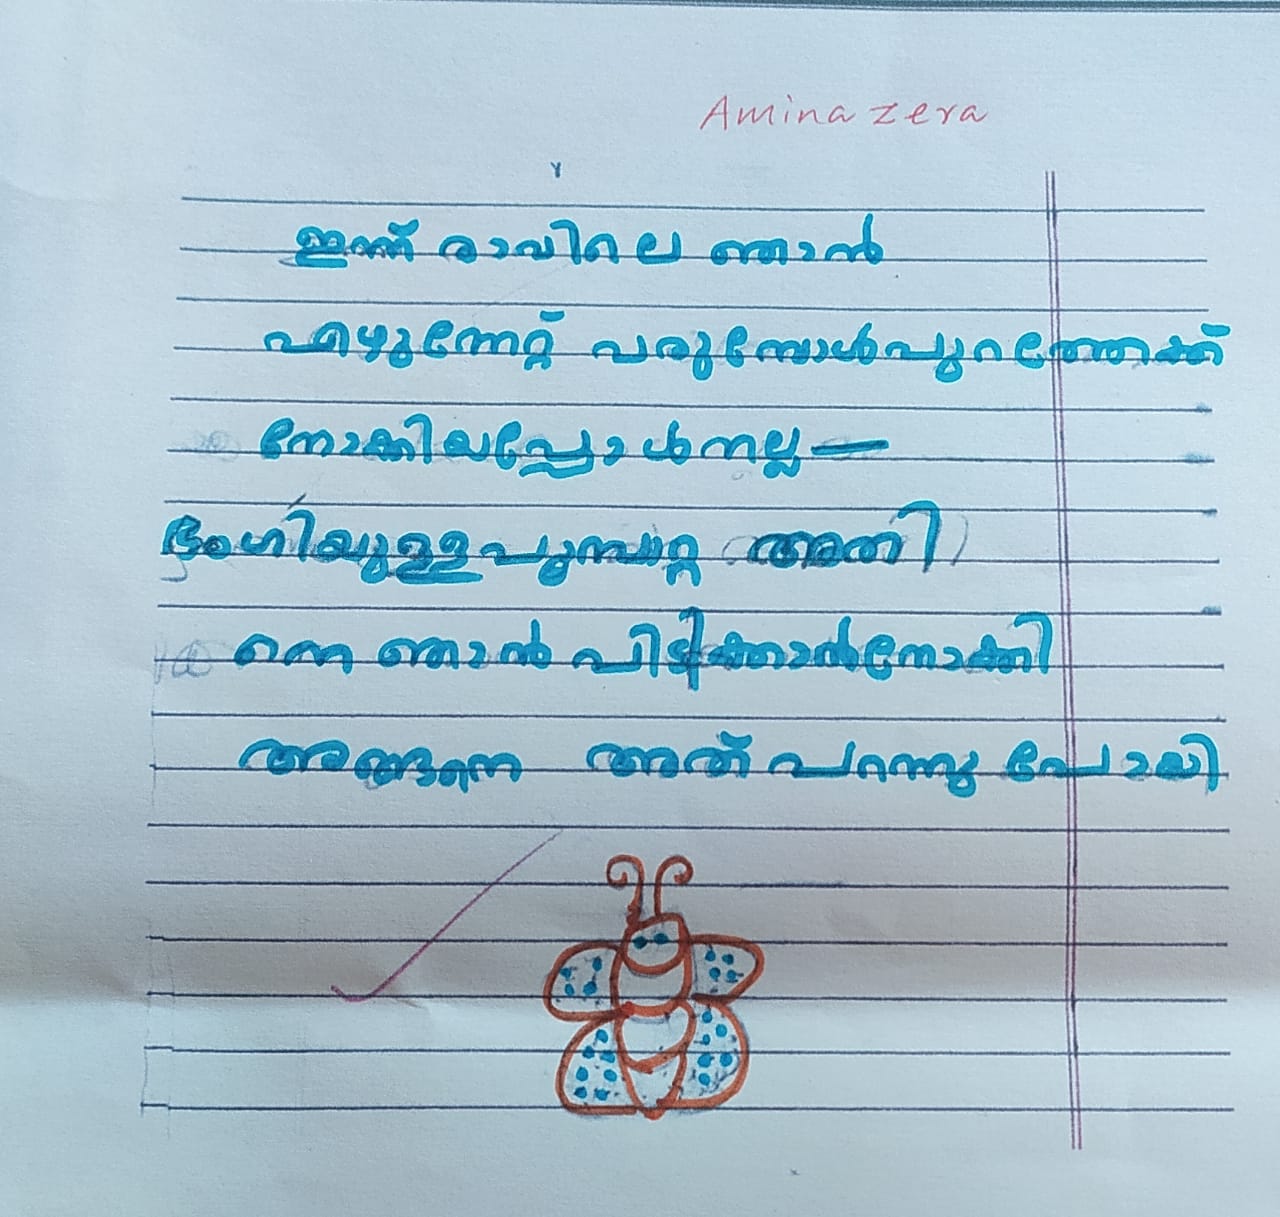 Amina zera
ഇന്ന് രാവിലെ ഞാൻ
എഴുന്നേറ്റ് വരുമ്പോൾപുറത്തേക്ക്
നോക്കിയപ്പോൾനല്ല—
ഭംഗിയുള്ള പുമ്പാറ്റ അതി
നെ ഞാൻ പിടിക്കാൻനോക്കി
അങ്ങനെ അത് പറന്നു പോയി